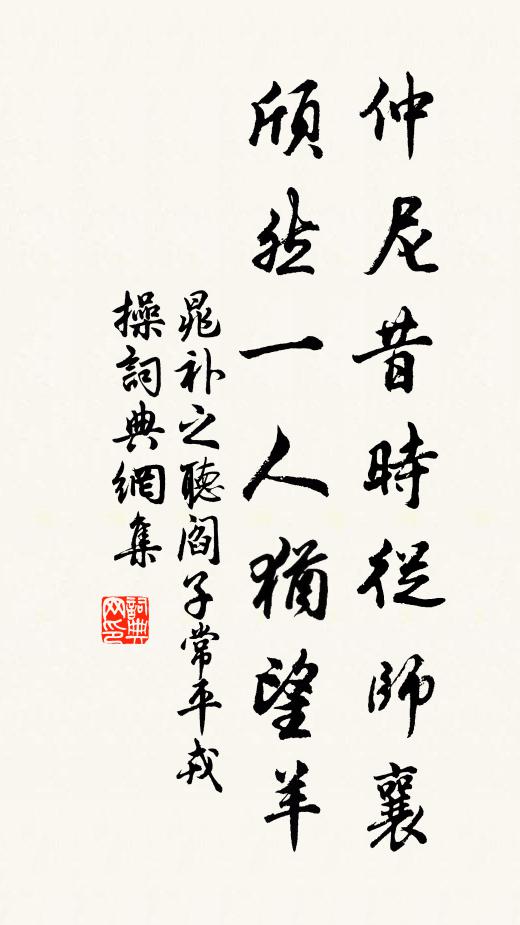 仲尼昔時從師襄
頎然一人猶望羊
晁補之聽閻子常平戎
操詞典網集
詞典
网印